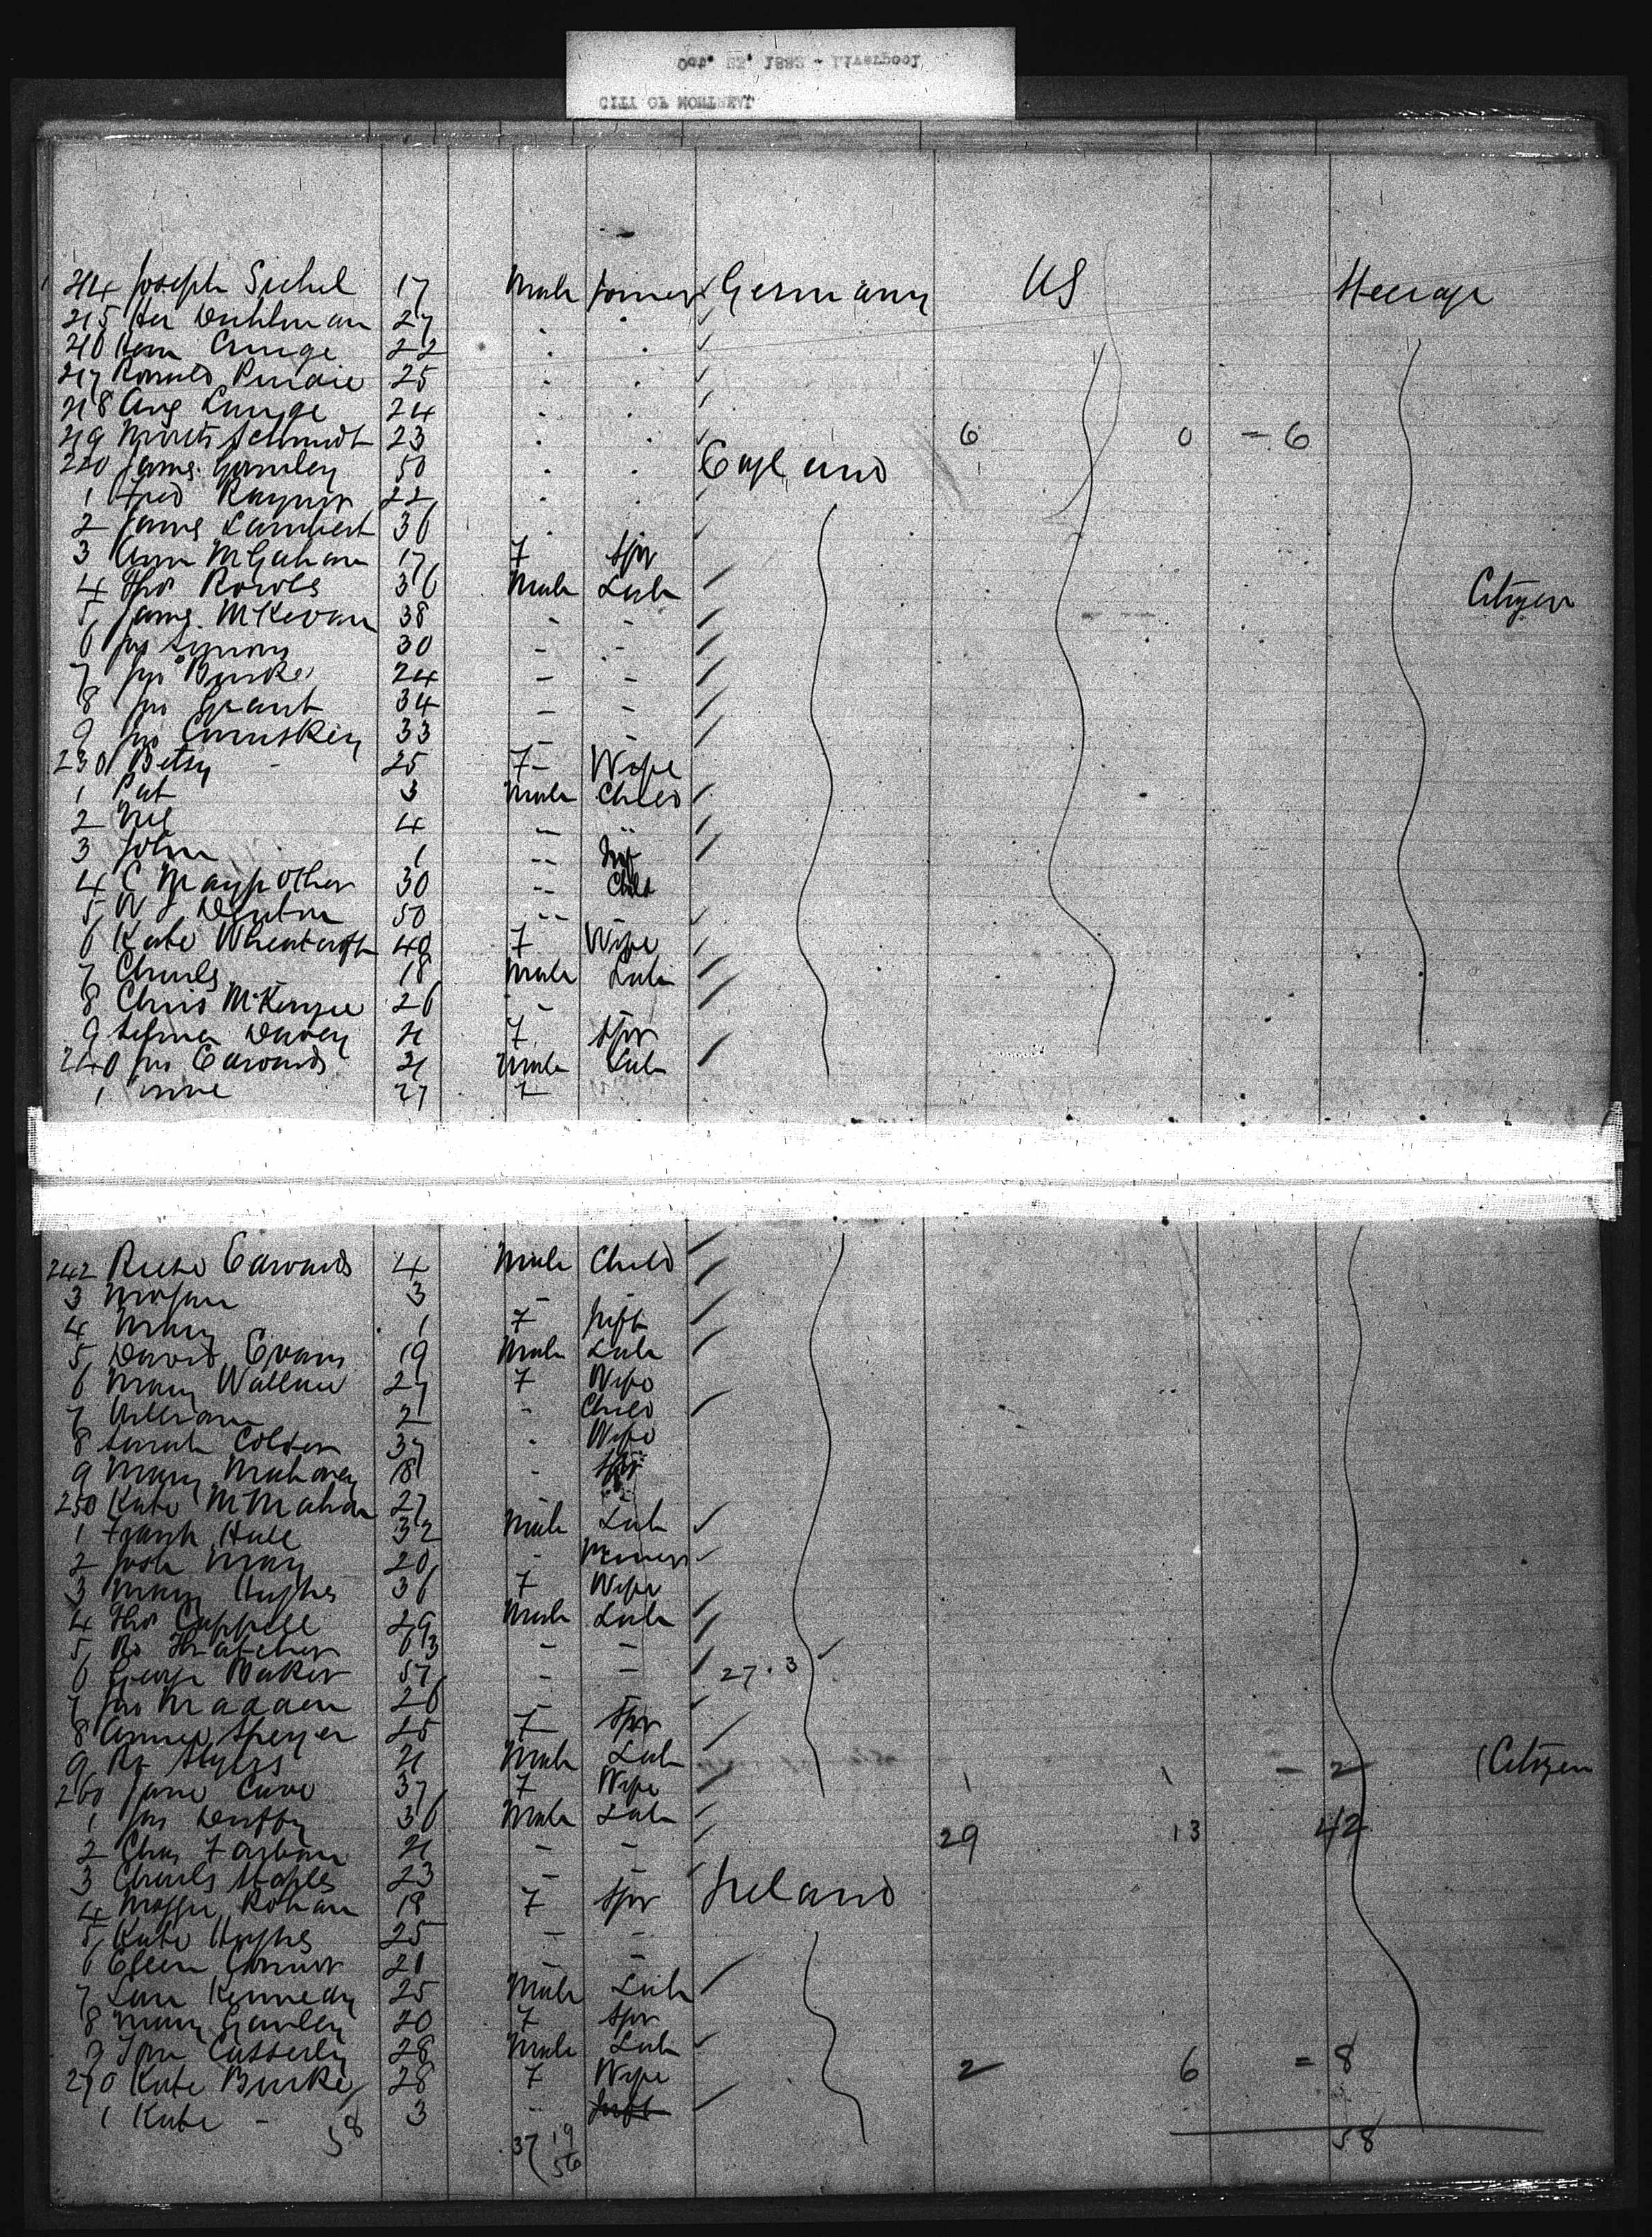 Oct. 22. 1883 - Liverpool
CITY OF MONTREAL
214 Joseph Sichel 17 Male Joiner Germany US Steerage
215 Her Duhlman 27
216 Hern 22
217 25
218 Aug Lange 24
219 Moritz Schmidt 23 6 0 = 6
220 James Gormley 50 England
1 Fred Raynor 22
2 James Lambert 36
3 Ann McGahan 17 F Spr
4 Thos Rowls 36 Male Lab Citizen
5 James McKevan 38 - -
6 Jas Symons 30 - -
7 Jno Burke 24 - -
8 Jno Grant 34 - -
9 Jno Comiskey 33 - -
230 Betsy - 25 F Wife
1 Pat 3 Male Child
2 4 -
3 John 1 - Inf
4 C Maypother 30 - Child
5 W J 50 -
6 Kate Wheatcroft 40 F Wife
7 Charles 18 Male Lab
8 Chris McKenzie 26 -
9 Selina Davey 21 F Spr
240 Jno Edwards 21 Male Lab
1 Anne 27 F
242 Reese Edwards 4 Male Child
3 Morgan 3 - -
4 Mary 1 F Inft
5 David Evans 19 Male Lab
6 Mary Wallace 27 F Wife
7 William 2 - Child
8 Sarah Colder 37 - Wife
9 Mary Mahoney 18 - Spr
250 Kate McMahon 27 -
1 Frank Hall 32 Male Lab
2 Josh May 20 - Miner
3 Mary Hughes 36 F Wife
4 Thos Cappell 29 Male Lab
5 Thatcher 63 - -
6 George Baker 57 - - 27.3
7 Jno Madden 26 - -
8 Annie Speyer 25 F Spr
9 Styers 21 Male Lab
260 Jane Cave 37 F Wife 1 1 = 2 (Citizen
1 Jas Duffy 36 Male Lab 29 13 42
2 Chas 21 - -
3 Charles Staples 23 - -
4 Rohan 18 F Spr Ireland
5 Kate Hughes 25 - -
6 Ellen Connor 20 - -
7 Kennedy 25 Male Lab
8 Mary Ganley 20 F Spr
9 Tom Casserly 28 Male Lab
270 Kate Burke 28 F Wife 2 6 = 8
1 Kate - 3 - Inft
58 37 19 58
56